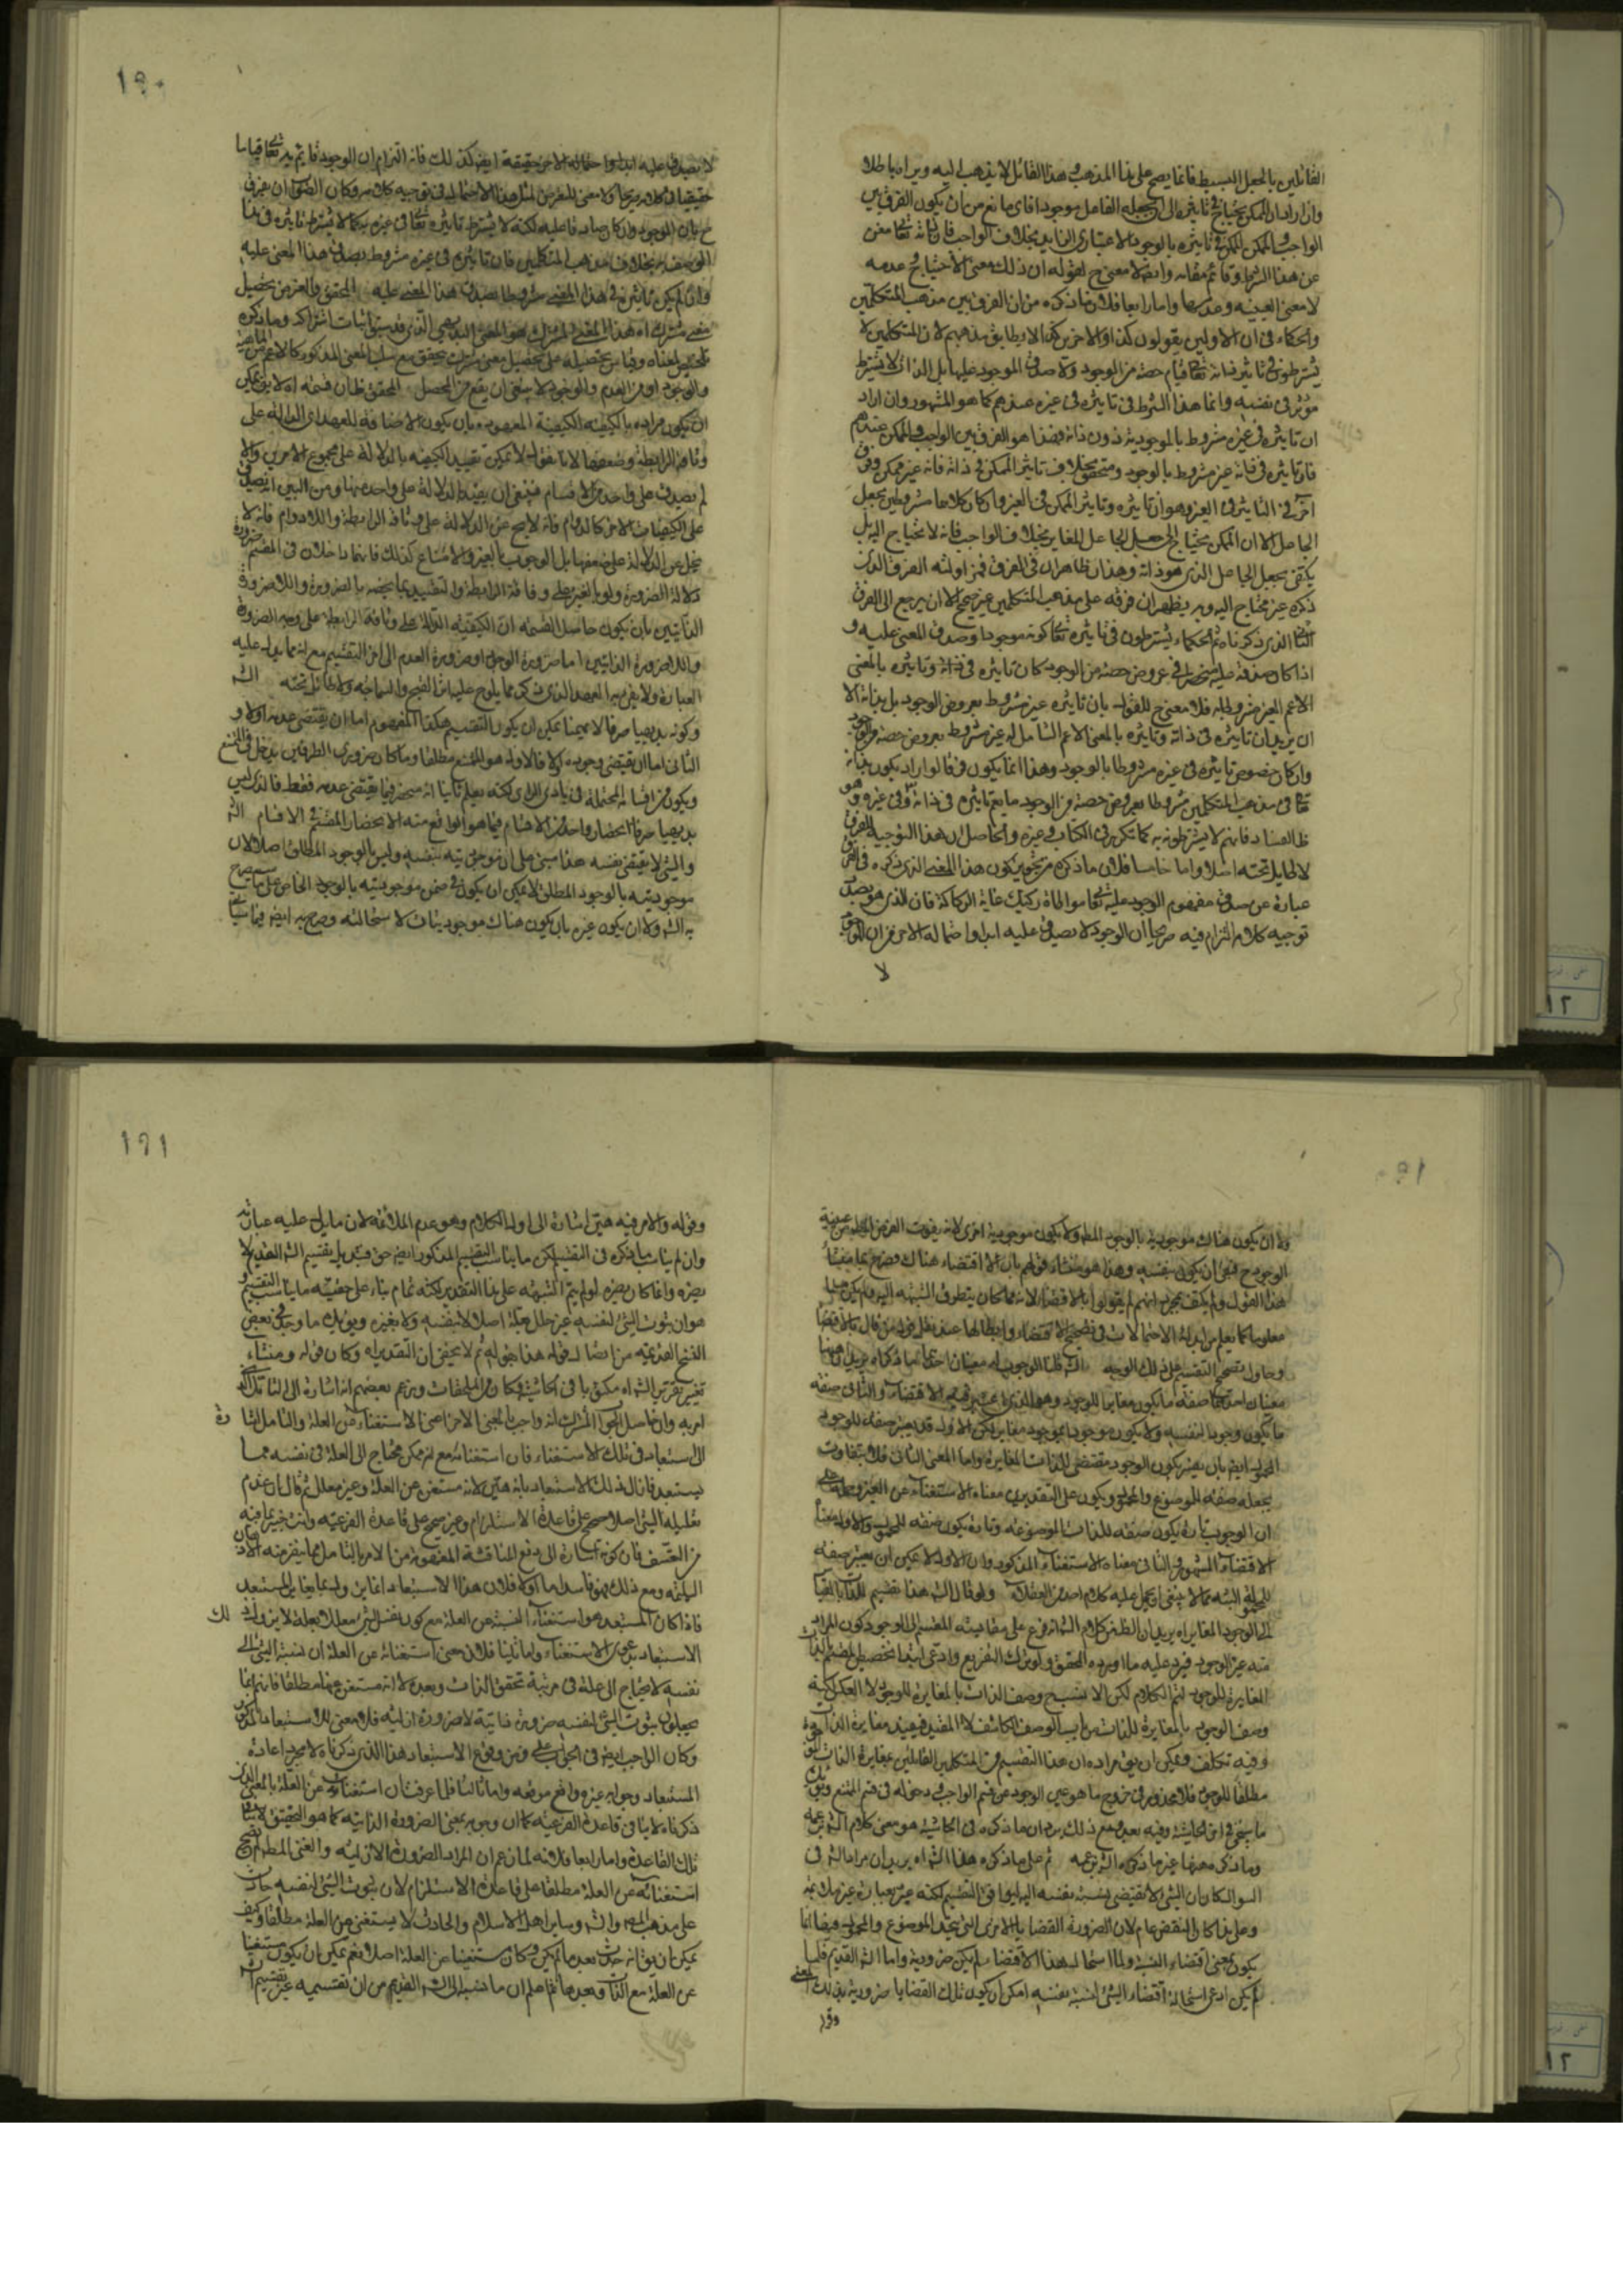 القائلين بالجعل البسيط فانما يصح على هذا المذهب وهذا القائل لا يذهب اليه ويراه باطلا
وان اراد ان الممكن يحتاج في تاثيره الى ان يجعله الفاعل موجودا فاي مانع من ان يكون الفرق بين
الواجب والممكن في تاثيره بالوجود الاعتباري الزايد بخلاف الواجب فان
عن هذا الشرط وقائم مقامه وايضا لا معنى ح لقوله ان ذلك معنى الاحتياج وعدمه
لا معنى العينية وعدمها واما رابعا فلان ما ذكره من ان الفرق بين مذهب المتكلمين
والحكماء في ان الاولين يقولون كذا والاخرين كذا لا يطابق مذهبهم لان المتكلمين لا
يشترطون في تاثير ذاته تعالى قيام حصة من الوجود ولا صدق الموجود عليها بل الذات لا يشترط
مؤثر في نفسه وانما هذا الشرط في تاثيره في غيره عندهم كما هو المشهور وان اراد
ان تاثيره في غيره مشروط بالموجودية دون ذاته فهذا هو الفرق بين الواجب والممكن عندهم
فان تاثيره في ذاته غير مشروط بالوجود ومتحقق بخلاف تاثير الممكن في ذاته فانه غير ممكن وفرق
آخر في التاثير في الغير وهو ان تاثيره وتاثير الممكن في الغير وان كان كلاهما مشروطين بجعل
الجاعل الا ان الممكن يحتاج الى جعل الجاعل المغاير بخلاف الواجب فانه لا يحتاج اليه بل
يكتفي بجعل الجاعل الذي هو ذاته وهذان ظاهران في الفرق فمزاولته الفرق الذي
ذكره غير محتاج اليه وبه يظهر ان فرقه على مذهب المتكلمين غير صحيح الا ان يرجع الى الفرق
الذي ذكرناه ثم الحكماء يشترطون في تاثيره تعالى كونه موجودا وصدق المعنى عليه و
اذا كان صدقه عليه منحصرا في عروض حصة من الوجود كان تاثيره في ذاته وتاثيره بالمعنى
الاعم الغير مشروط به فلا معنى ح للقول بان تاثيره غير مشروط بعروض الوجود بل بذاته الا
ان يريد ان تاثيره في ذاته وتاثيره بالمعنى الاعم الشامل له غير مشروط بعروض حصة من الوجود
وان كان خصوص تاثيره في غيره مشروطا بالوجود وهذا انما يكون فرقا لو اراد بكون تاثيره
تعالى في مذهب المتكلمين مشروطا بعروض حصة من الوجود ما يعم تاثيره في ذاته وفي غيره وهو
ظاهر الفساد فانهم لا يشترطونه به كما تكرر في الكتاب وغيره والحاصل ان هذا التوجيه للفرق
لا طايل تحته اصلا واما خامسا فلان ما ذكره من تجويز كون هذا المعنى الذي ذكره في الفرق
عبارة عن صدق مفهوم الوجود عليه تعالى مواطاة ركيك غاية الركاكة فان الذي هو بصدد
توجيه كلامه التزم فيه صريحا ان الوجود لا يصدق عليه ابدا واحتماله الاخر من ان الوجود
لا
١٩٠
لا يصدق عليه ابدا واحتماله الاخر حقيقة ايضا كذلك فانه التزام ان الوجود قائم به تعالى قياما
حقيقيا في كلامه صريحا ولا معنى للتعرض لمثل هذا الاحتمال في توجيه كلامه وكان الصواب ان يفرق
ح بان الوجود وان كان صادقا عليه لكنه لا يشترط تاثيره تعالى في غيره به كما لا يشترط تاثيره في ذاته
الوصف به بخلاف مذهب المتكلمين فان تاثيره في غيره مشروط بصدق هذا المعنى عليه
وان لم يكن تاثيره في هذا المعنى مشروطا بصدق هذا المعنى عليه المحقق والغرض تحصيل
معنى مشترك اه هذا المعنى المشترك هو المعنى البديهي الذي قد سبق اثبات اشتراكه وما ذكره
تلخيص لمعناه وقياس تحصيله على تحصيل معنى مشترك يتحقق مع سلب المعنى المذكور كالاعم من الماهية
والوجود او من العدم والوجود لا ينبغي ان يقع من المحصل المحقق ظان قسمته اه لا يقال يمكن
ان يكون مراده بالكيفية الكيفية المعهودة بان يكون الاضافة للعهد اي الدالة على
وثاقة الرابطة وضعفها لانا نقول لا يمكن تقييد الكيفية بالدلالة على مجموع الامرين والا
لم يصدق على واحد من الاقسام فينبغي ان يقيد بالدلالة على واحد منهما ومن البين انه يصدق
على الكيفيات الاخر كالدوام فانه لا يخ عن الدلالة على وثاقة الرابطة واللادوام فانه لا
يخلو عن الدلالة على ضعفها بل الوجوب بالغير والامتناع كذلك فانهما داخلان في المقسم ضرورة
دلالة الضرورة ولو بالغير على وثاقة الرابطة والتقييد بما يخصه بالضرورة واللاضرورة
الذاتيتين بان يكون حاصل القسمة ان الكيفية الدالة على وثاقة الرابطة على وجه الضرورة
واللاضرورة الذاتيتين اما ضرورة الوجود او ضرورة العدم الى اخر التقسيم مع انه مما لا يدل عليه
العبارة ولا يقربه العهد الذي ذكر مما يلوح عليه اثار القبح والسماجة ولا طائل تحته الش
وكونه بديهيا صرفا لا يمنعنا يمكن ان يكون التقسيم هكذا المفهوم اما ان يقتضي عدمه اولا و
الثاني اما ان يقتضي وجوده اولا فالاول هو الممتنع مطلقا وما كان ضروري الطرفين يدخل في الممتنع
ويكون من اقسامه المحتملة في بادي الراي لكنه يعلم ثانيا انه منحصر فيما يقتضي عدمه فقط فالذي ليس
بديهيا صرفا انحصار واحد من الاقسام فيما هو الواقع منه لا انحصار المقسم في الاقسام الش
والشيء لا يقتضي نفسه هذا مبني على ان موجوديته بنفسه وليس بالوجود المطلق اصلا لان
موجوديته بالوجود المطلق لا يمكن ان يكون في ضمن موجوديته بالوجود الخاص على ما صرح
به الش ولا ان يكون غيره بان يكون هناك موجوديتان لاستحالته وصرح به ايضا فيما سياتي
١٩٠
ولا ان يكون هناك موجودية بالوجود المط ولا يكون موجودية اخرى لانه يفوت الغرض المطلوب من عينية
الوجود ح فبقي ان يكون بنفسه وهذا هو منشاء قولهم بان لا اقتضاء هناك فصرح بما هو منشا
هذا القول ولم يكتف بمجرد انهم لم يقولوا بالاقتضاء لانه مما كان يتطرق الشبهة اليه ولم يكن جليا
معلوما كما يعلم من ابداء الاحتمالات في تصحيح الاقتضاء وابطالها عند نقل قول من قال بالاقتضا
وحاول تصحيح التقسيم على ذلك الوجه الش قلنا الوجوب له معنيان احدهما ما ذكرناه يريد ان هيهنا
معنيان احدهما صفة ما يكون مغايرا للوجود وهو الذي اعتبر فيه الاقتضاء والثاني صفة
ما يكون وجودا لنفسه ولا يكون موجودا بموجود مغاير لكن الاول قد يعتبر صفة للوجود
المحمول ايضا بان يعتبر كون الوجود مقتضى للذات المغايرة واما المعنى الثاني فلا يتفاوت
بجعله صفة للموضوع والمحمول ويكون على التقديرين معناه الاستغناء عن الغير وحمله على
ان الوجوب تارة يكون صفة للذات الموضوعة وتارة يكون صفة للمحمول والاول معناه
الاقتضاء المشهور والثاني معناه الاستغناء المذكور وان الاول لا يمكن ان يعتبر صفة
للمحمول البتة مما لا ينبغي ان يحمل عليه كلام احد من العقلاء ولو قال الش هذا تقسيم للذات بالقياس
الى الوجود المغاير اه يريد ان الظاهر من كلام الش انه فرع على مقايسته المقسم الى الوجود كون المراد
منه غير الوجود فيرد عليه ما اورده المحقق ولو ترك التفريع وادعى ابتداء تخصيص المقسم بالذات
المغايرة للوجود لتم الكلام لكن الانسب ح وصف الذات بالمغايرة للوجود لا العكس لكنه
وصف الوجود بالمغايرة للذات من باب الوصف الكاشف لا المقيد فيفيد مغايرة الذات
وفيه تكلف ويمكن ان يق مراده ان هذا التقسيم من المتكلمين القائلين بمغايرة الذات
مطلقا للوجود فلا محذور في خروج ما هو عين الوجود عن قسم الواجب ودخوله في قسم الممتنع ويؤيد
ما سيجئ في اخر الحاشية وفيه بعد ومع ذلك يرد ان ما ذكره في الحاشية هو معنى كلام الش بزعمه
وما ذكره هيهنا غير ما ذكره الش بزعمه ثم على ما ذكره هذا الش اه يريد ان مراد الش في
السؤال كان ان الشيء لا يقتضي نسبة نفسه اليه ليوافق التقسيم لكنه عبر بعبارة غير ملائمة
وعلى هذا كان النقض عام لان الضرورة القضايا الاخرى التي يتحد الموضوع والمحمول فيها انما
يكون بمعنى اقتضاء النسبة ولما استحال بهذا الاقتضاء لم يكن ضرورية واما الش القديم فلما
لم يكن ادعى استحالة اقتضاء الشيء نسبة نفسه امكن ان يكون تلك القضايا ضرورية بذلك المعنى
وقوله
١٩١
وقوله والامر فيه هين اشارة الى اول الكلام وهو عدم الملائمة لان ما يدل عليه عبارته
وان لم يناسب ما ذكره في التقسيم لكن ما يناسب التقسيم المذكور ايضا حق فتبديل تقسيم الش القديم لا
يضره وانما كان يضره لو لم يتم الشبهة على هذا التقدير لكنه تمام بناء على حقية ما يناسب التقسيم و
هو ان ثبوت الشيء لنفسه غير معلل بعلة اصلا لا بنفسه ولا بغيره ويؤيد ما وجد في بعض
النسخ القديمة من اتصال قوله هذا بقوله ثم لا يخفى ان التقدير اه وكان قوله ومنشاء
تغيير تقرير الش اه مكتوبا في الحاشية فكان من الملحقات وزعم بعضهم انه اشارة الى التامل الذي
امر به وان حاصل الجواب المشترك انه واجب بالمعنى الاخر اعني الاستغناء عن العلة والتامل اشارة
الى استبعاد في تلك الاستغناء فان استغنائه مع انه ممكن محتاج الى العلة في نفسه مما
يستبعد فازال ذلك الاستبعاد بانه هين لانه مستغن عن العلة وغير معلل ثم قال ان عدم
تعليله الشيء اصلا صحيح على قاعدة الاستلزام وغير صحيح على قاعدة الفرعية وانت خبير بما فيه
من التعسف فان كونه اشارة الى دفع المناقشة المفهومة من الامر بالتامل مما ينفر منه الاذهان
السليمة ومع ذلك فهو فاسد اما اولا فلان هذا الاستبعاد انما يزول بما يغاير المستبعد
فاذا كان المستبعد هو استغناء النسبة عن العلة مع كون نفس الشيء معللا بعلة لا يزول ذلك
الاستبعاد بدعوى الاستغناء واما ثانيا فلان معنى استغنائه عن العلة ان نسبة الشيء الى
نفسه لا يحتاج الى علة في مرتبة تحقق الذات وبعده لا انه مستغن عنها مطلقا فانهم انما
يجعلون ثبوت الشيء لنفسه ضرورة ذاتية لا ضرورة ازلية فلا معنى للاستبعاد المذكور
وكان الواجب ايضا في الجواب على فرض وقوع الاستبعاد هذا الذي ذكرناه لا مجرد اعادة
المستبعد وجوابه غيره واقع موقعه واما ثالثا فلما عرفت ان استغنائه عن العلة بالمعنى الذي
ذكرناه لا ينافي قاعدة الفرعية كما ان وجوبه بمعنى الضرورة الذاتية كما هو التحقيق لا ينافي
تلك القاعدة واما رابعا فلانه لما زعم ان المراد الضرورة الازلية والغنى المطلق لم يصح
استغنائه عن العلة مطلقا على قاعدة الاستلزام لان ثبوت الشيء لنفسه حادث
على مذهب المص والش وساير اهل الاسلام والحادث لا يستغني عن العلة مطلقا وكيف
يمكن ان يق انه حدث بعد ما لم يكن وكان مستغنيا عن العلة اصلا نعم يمكن ان يكون مستغنيا
عن العلة مع الذات وبعدها ثم اعلم ان ما نسبه الى الش القديم من ان تقسيمه غير تقسيم الش